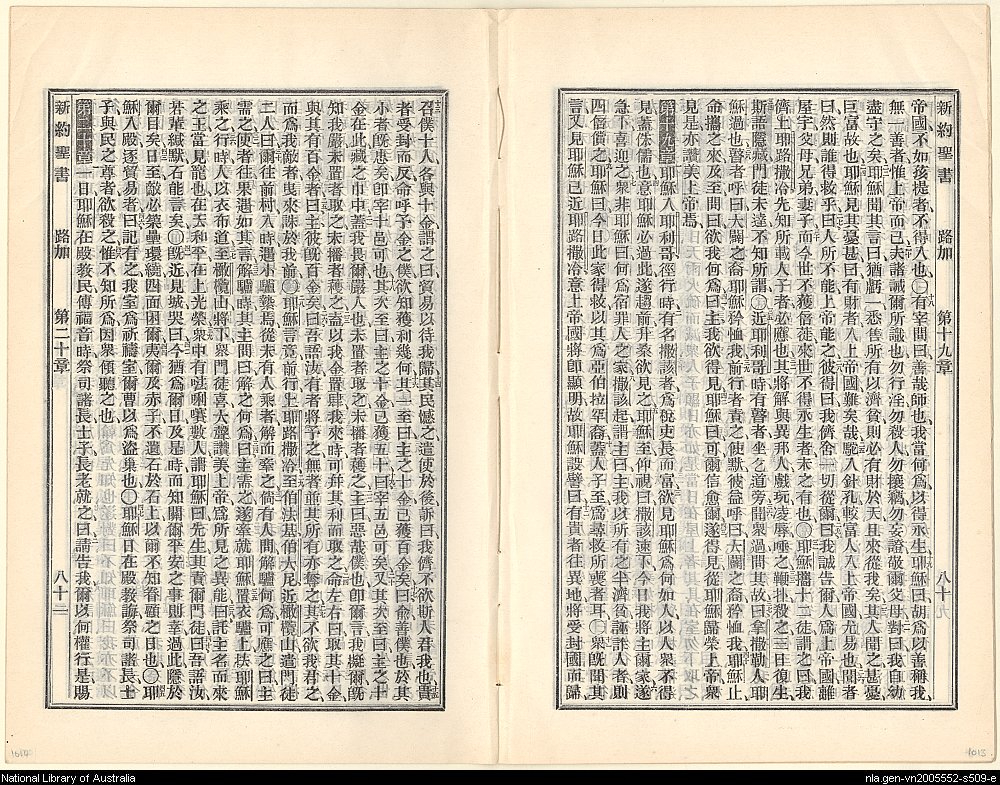 新約聖書 路加 第十九章 八十
帝國不如孩提者不得入也○有宰問曰善哉師也我當何爲以得永生耶穌曰胡爲以善稱我
無一善者惟上帝而已夫諸誡爾所識也勿行淫勿殺人勿攘竊勿妄證敬爾父母對曰我自幼
盡守之矣耶穌聞其言曰猶虧一悉售所有以濟貧則必有財於天且來從我矣其人聞之甚憂
巨富故也耶穌見其憂甚曰有財者入上帝國難矣哉駝入針孔較富人入上帝國尤易也聞者
曰然則誰得救乎曰人所不能上帝能之彼得曰我儕舍一切從爾曰我誠告爾人爲上帝國離
屋宇父母兄弟妻子而今世不獲倍蓰來世不得永生者未之有也○耶穌攜十二徒謂之曰我
儕上耶路撒冷先知所載人子者必應也其將解與異邦人戲玩凌辱唾之鞭扑殺之三日復生
斯語隱藏門徒未達不知所謂○近耶利哥時有瞽者坐乞道旁聞衆過問其故曰拿撒勒人耶
穌過也瞽者呼曰大闢之裔耶穌矜恤我前行者責之使默彼益呼曰大闢之裔矜恤我耶穌止
命攜之來及至問曰欲我何爲曰主我欲得見耶穌曰可爾信愈爾遂得見從耶穌歸榮上帝衆
見是亦讚美上帝焉
第十九章 耶穌入耶利哥徑行時有名撒該者爲稅吏長而富欲見耶穌爲何如人以人衆不得
見蓋侏儒也意耶穌必過此遂趨前升桑欲見之耶穌至仰視曰撒該速下今日我將主爾家遂
急下喜迎之衆非耶穌曰何爲宿罪人之家撒該起謂主曰主我以所有之半濟貧誣詐人者則
四倍償之耶穌曰今日此家得救以其爲亞伯拉罕裔蓋人子至爲尋救所喪者耳○衆旣聞其
言又見耶穌已近耶路撒冷意上帝國將卽顯明故耶穌設譬曰有貴者往異地將受封國而歸
召僕十人各與十金謂之曰貿易以待我歸其民憾之遣使於後訴曰我儕不欲斯人君我也貴
者受封而反命呼予金之僕欲知獲利幾何其一至曰主之十金已獲百金矣曰俞善僕也於其
小者旣忠矣卽宰十邑可也其次至曰主之十金已獲五十曰宰五邑可矣又其次至曰主之十
金在此藏之巾中蓋我畏爾嚴人也未置者取之未播者穫之主曰惡哉僕也卽爾言我擬爾旣
知我嚴未置者取之未播者穫之盍以我金置肆我來時可幷其利而取之命左右曰取其十金
與其有百金者曰主彼旣百金矣曰吾語汝有者將予之無者幷其所有亦奪之其不欲我君之
而爲我敵者曳來誅於我前○耶穌言竟前行上耶路撒冷至伯法基伯大尼近橄欖山遣門徒
二人曰爾往前村入時遇小驢縶焉從未有人乘者解而牽之倘有人問解驢何爲可應之曰主
需之使者往果遇如其言解驢時其主問曰解之何爲曰主需之遂牽就耶穌置衣驢上扶耶穌
乘之行時人以衣布道至橄欖山將下衆門徒喜大聲讚美上帝爲所見之異能曰託主名而來
之王當見寵也在天和平在上光榮衆中有𠵽唎㘔數人謂耶穌曰先生其責爾門徒曰吾語汝
若輩緘默石能言矣○旣近見城哭曰今猶爲爾日及是時而知關爾平安之事則幸過此隱於
爾目矣日至敵必築壘環繞四面困爾夷爾及赤子不遺石於石上以爾不知眷顧之日也○耶
穌入殿逐貿易者曰記有之我室爲祈禱室爾曹以爲盜巢也○耶穌日在殿教誨祭司諸長士
子與民之尊者欲殺之惟不知所爲因衆傾聽之也
第二十章 一日耶穌在殿教民傅福音時祭司諸長士子長老就之曰請告我爾以何權行是賜
新約聖書 路加 第二十章 八十
National Library of Australia
nla.gen-vn2005552-s509-e